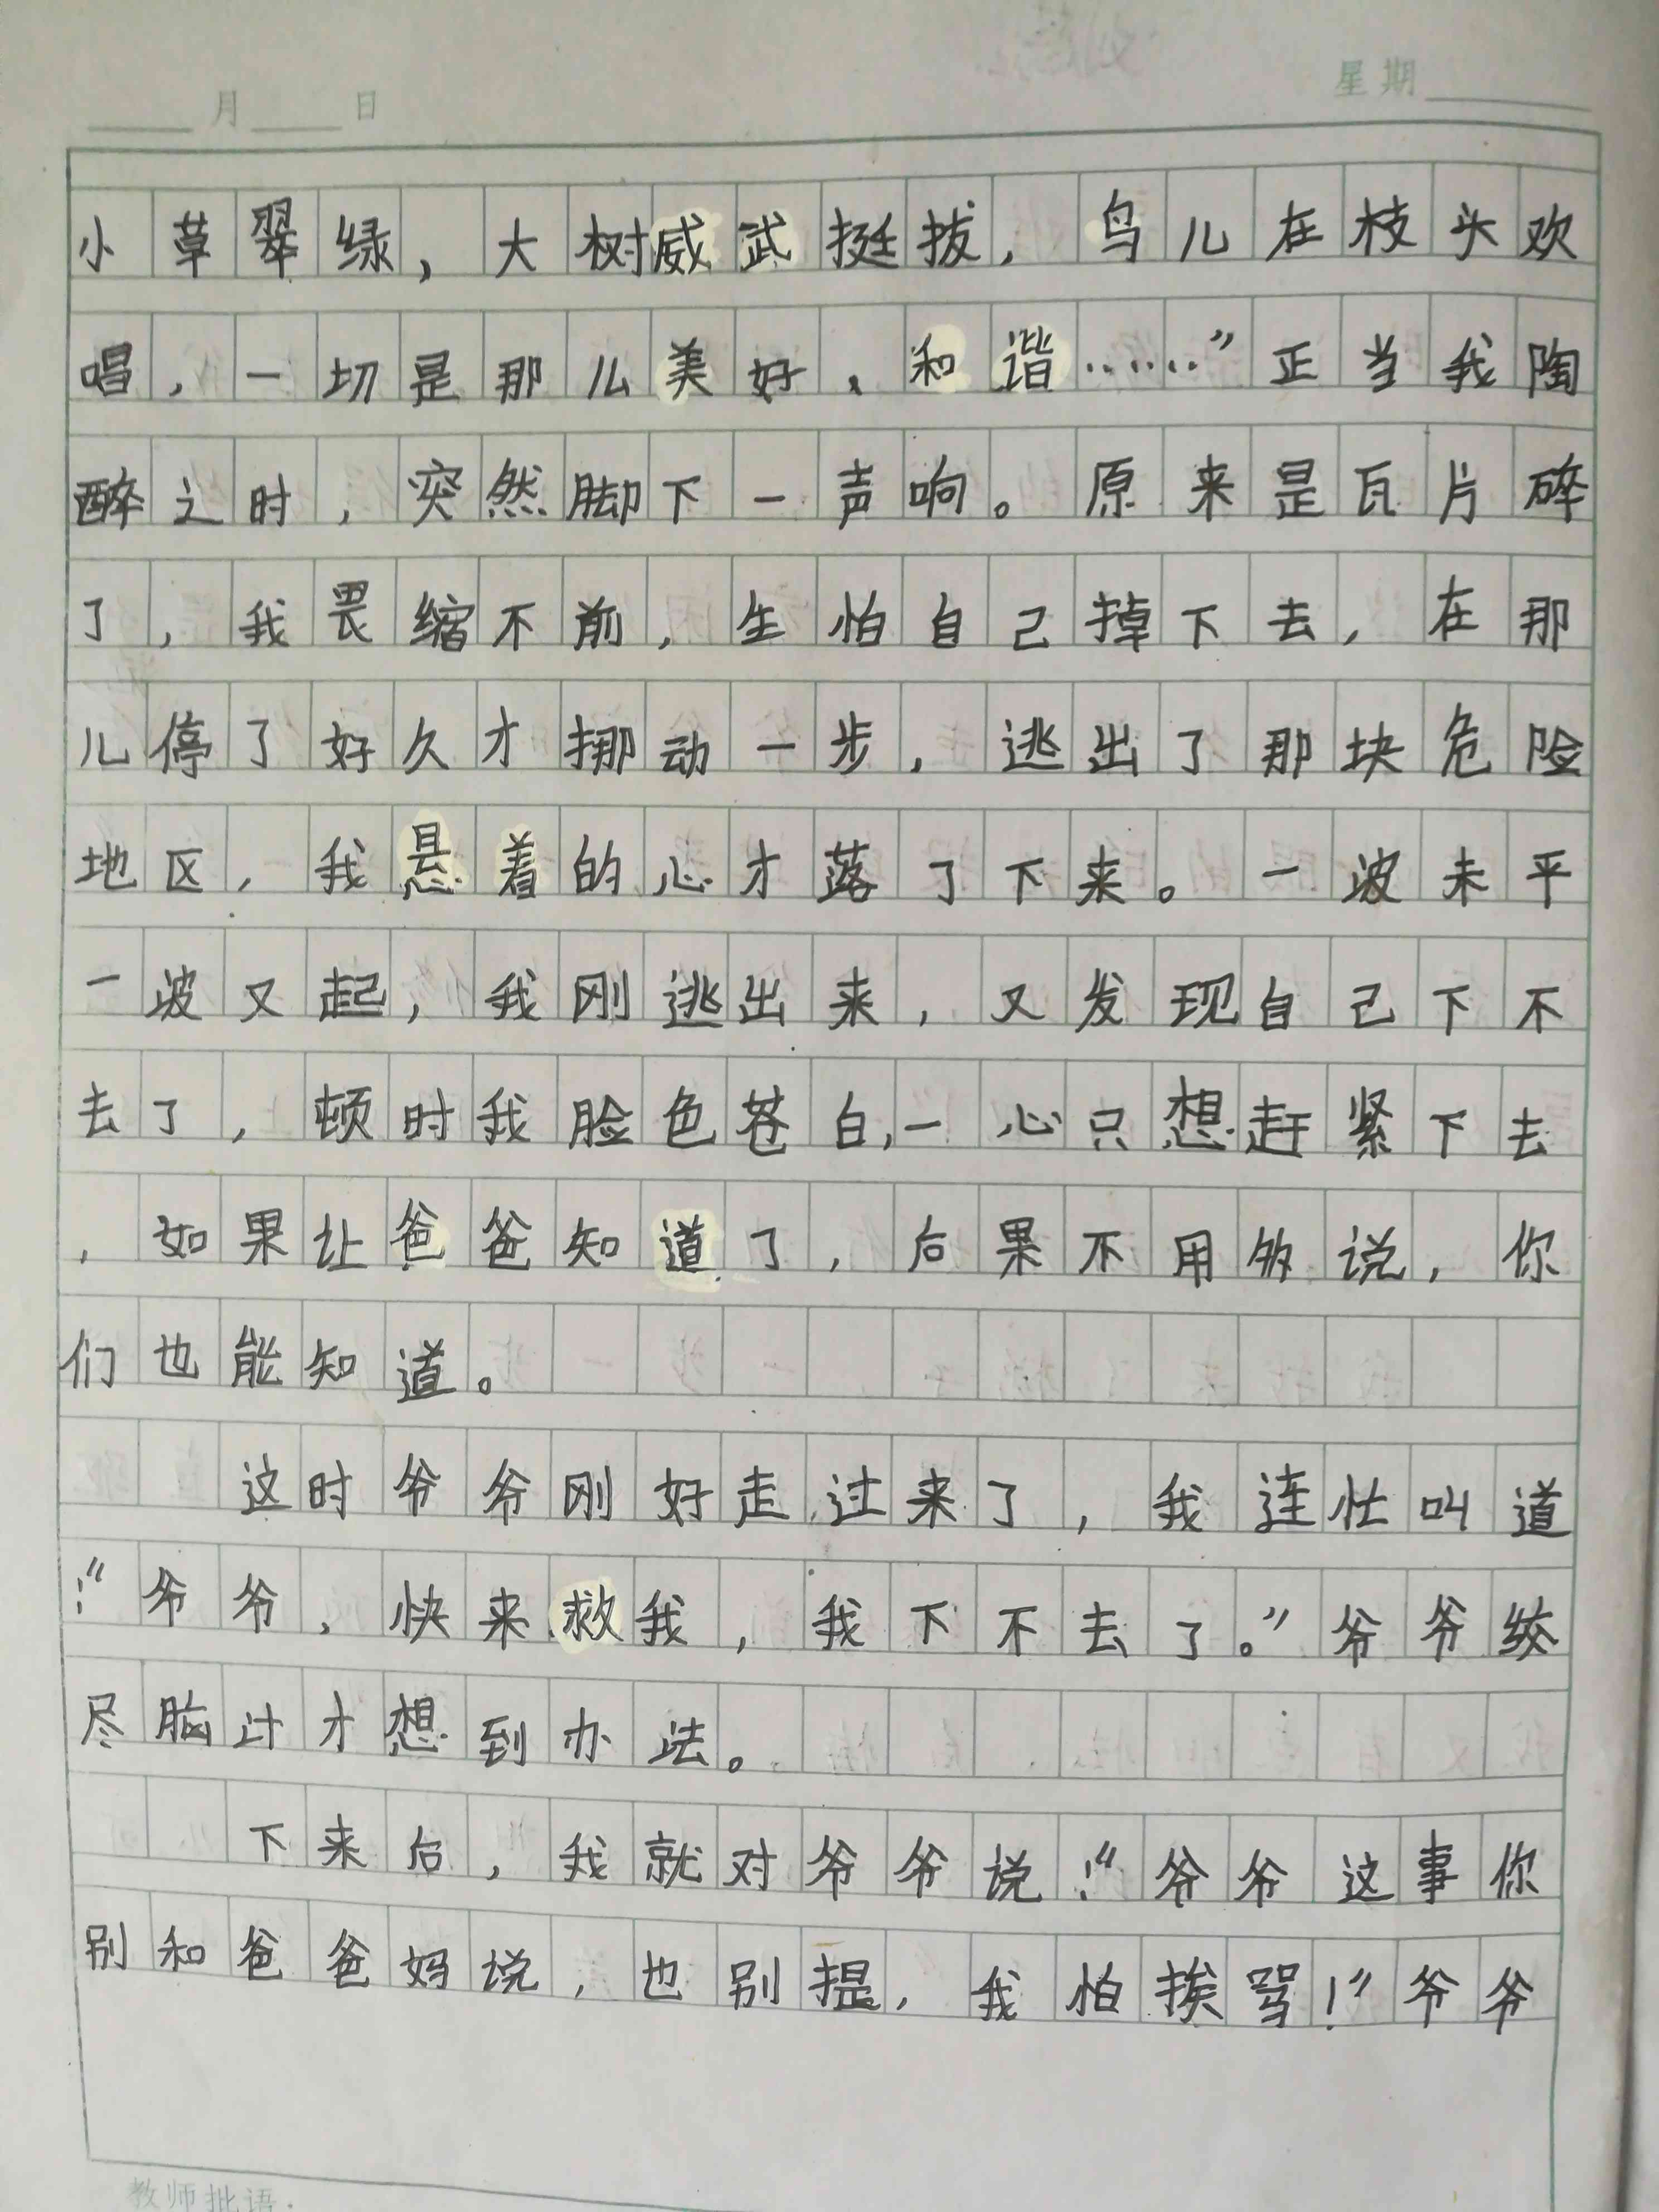 月 日 星期
小草翠绿，大树威武挺拔，鸟儿在枝头欢
唱，一切是那儿美好、和谐……”正当我陶
醉之时，突然脚下一声响。原来是瓦片碎
了，我畏缩不前，生怕自己掉下去，在那
儿停了好久才挪动一步，逃出了那块危险
地区，我悬着的心才落了下来。一波未平
一波又起，我刚逃出来，又发现自己下不
去了，顿时我脸色苍白，一心只想赶紧下去
，如果让爸爸知道了，后果不用多说，你
们也能知道。
这时爷爷刚好走过来了，我连忙叫道
：“爷爷，快来救我，我下不去了。”爷爷绞
尽脑汁才想到办法。
下来后，我就对爷爷说：“爷爷这事你
别和爸爸妈说，也别提，我怕挨骂！”爷爷
教师批语：